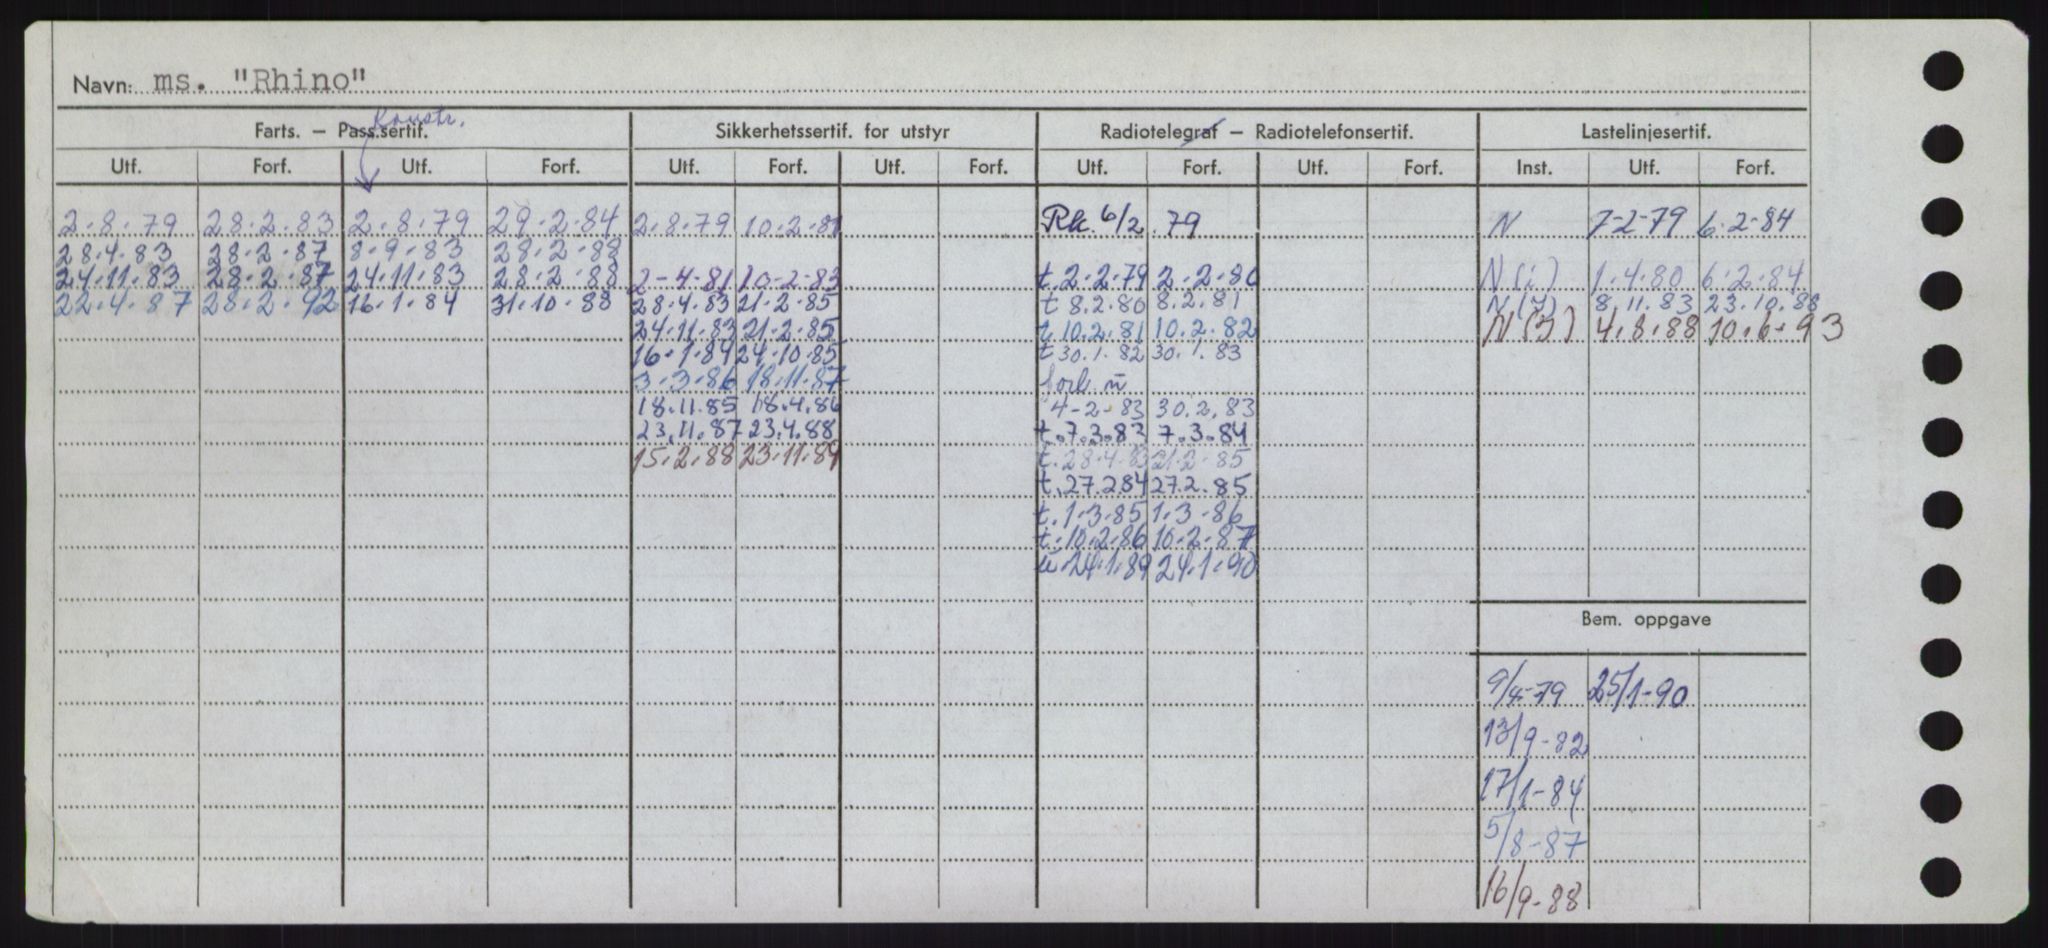 Navn: ms. "Rhino"
Konstr.
Farts. — Pass.sertif. Sikkerhetssertif. for utstyr Radiotelegraf — Radiotelefonsertif. Lastelinjesertif.
Utf. Forf. Utf. Forf. Utf. Forf. Utf. Forf. Utf. Forf. Utf. Forf. Inst. Utf. Forf.
2.8.79 28.2.83 2.8.79 29.2.84 2.8.79 10.2.81 Rk. 6/2.79 N 7-2-79 6.2-84
28.4.83 28.2.87 8.9.83 28.2.88
24.11.83 28.2.87 24.11.83 28.2.88 2-4-81 10-2-83 t.2.2.79 2.2.80 N(i) 1.4.80 6.2.84
22.4.87 28.2.92 16.1.84 31.10.88 28.4.83 21.2.85 t 8.2.80 8.2.81 8.11.83 23.10.88
24.11.83 21.2.85 t.10.2.81 10.2.82 4.8.88 10.6.93
16.1.84 24.10.85 t 30.1.82 30.1.83
3.3.86 18.11.87
18.11.85 18.4.86 4-2-83 30.2.83
23.11.87 23.4.88 t.7.3.83 7.3.84
15.2.88 23.11.89 t.28.4.83 21.2.85
t.27.2.84 27.2.85
t.1.3.85 1.3.86
t.10.2.86 10.2.87
u.24.1.89 24.1.90
Bem. oppgave
9/4-79 25/1-90
13/9-82
17/1-84
5/8-87
16/9-88